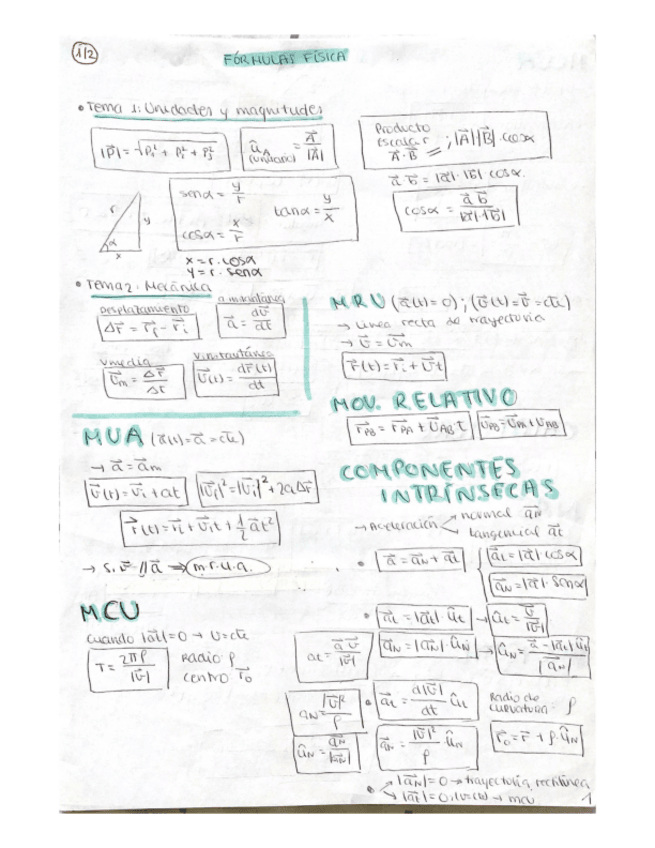 1/2
FÓRMULAS FÍSICA
• Tema 1: Unidades y magnitudes
|P⃗| = √(P₁² + P₂² + P₃²)
û_A (unitario) = A⃗/|A⃗|
Producto escalar A⃗·B⃗ = ; |A⃗||B⃗|·cosα
a⃗ b⃗ = |a⃗|·|b⃗| cosα.
cosα = a⃗ b⃗/|a⃗|·|b⃗|
r
y
α
x
senα = y/r
tanα = y/x
cosα = x/r
x = r·cosα
y = r·senα
• Tema 2: Mecánica
desplazamiento
Δr⃗ = r⃗f - r⃗i
a.instantánea
a⃗ = dv⃗/dt
v.media
v⃗m = Δr⃗/Δt
v.instantánea
v⃗(t) = dr⃗(t)/dt
MRU (a⃗(t)=0) ; (v⃗(t)=v⃗=cte)
→ línea recta de trayectoria
→ v⃗ = v⃗m
r⃗(t) = r⃗i + v⃗t
MOV. RELATIVO
r⃗PB = r⃗PA + v⃗AB t
v⃗PB = v⃗PA + v⃗AB
MUA (a⃗(t)=a⃗=cte)
→ a⃗ = a⃗m
v⃗(t) = v⃗i + at
|v⃗|² = |v⃗i|² + 2aΔr⃗
r⃗(t) = r⃗i + v⃗it + 1/2 a⃗t²
→ si v⃗ // a⃗ ⇒ m.r.u.a.
COMPONENTES
INTRÍNSECAS
→ Aceleración
normal a⃗N
tangencial a⃗t
• a⃗ = a⃗N + a⃗t
a⃗t = |a⃗| cosα
a⃗N = |a⃗|·senα
• a⃗t = |a⃗t|·ût → ût = v⃗/|v⃗|
a⃗N = |a⃗N|·ûN → ûN = a⃗ - |a⃗t| ût/|a⃗N|
MCU
cuando |a⃗t|=0 → v=cte
T = 2πρ/|v⃗|
radio ρ
centro r⃗o
at = a⃗ v⃗/|v⃗|
aN = |v⃗|²/ρ
ûN = a⃗N/|a⃗N|
• a⃗t = d|v⃗|/dt ût
a⃗N = |v⃗|²/ρ ûN
Radio de
curvatura = ρ
r⃗o = r⃗ + ρ·ûN
• |a⃗N| = 0 → trayectoria rectilínea
→ |a⃗t| = 0, → mcu
1